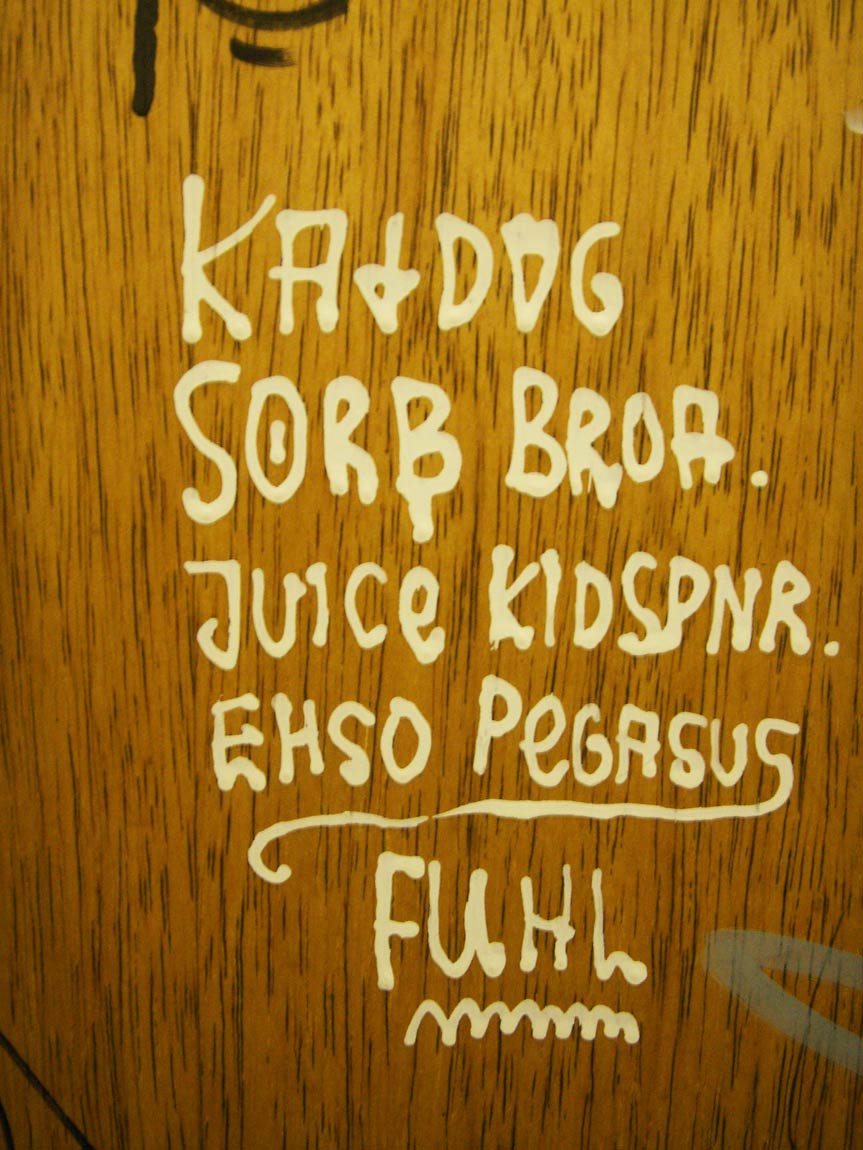 KATDOG
SORB BROA.
JUICE KIDSPNR.
EHSO PEGASUS
FUHL